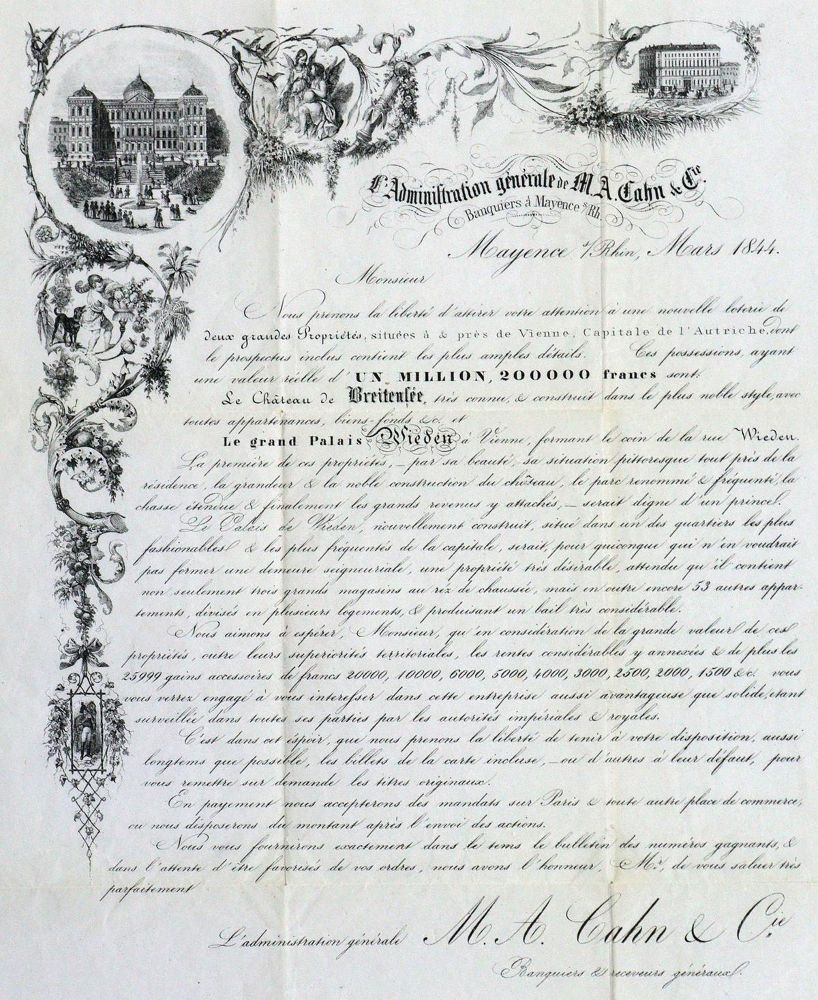 L'Administration générale de M. A. Cahn & Cie
Banquiers à Mayence s/Rh.
Mayence s/Rhin, Mars 1844.
Monsieur
Nous prenons la liberté d'attirer votre attention à une nouvelle loterie de
deux grandes Propriétés, situées à & près de Vienne, Capitale de l'Autriche, dont
le prospectus inclus contient les plus amples détails. Ces possessions, ayant
une valeur réelle d'UN MILLION, 200000 francs sont:
Le Château de Breitensée, très connu, & construit dans le plus noble style, avec
toutes appartenances, biens-fonds &c. et
Le grand Palais Wieden à Vienne, formant le coin de la rue Wieden.
La première de ces propriétés, — par sa beauté, sa situation pittoresque tout près de la
résidence, la grandeur & la noble construction du château, le parc renommé & fréquenté, la
chasse étendue & finalement les grands revenus y attachés, — serait digne d'un prince.
Le Palais de Wieden, nouvellement construit, situé dans un des quartiers les plus
fashionables & les plus fréquentés de la capitale, serait, pour quiconque qui n'en voudrait
pas former une demeure seigneuriale, une propriété très désirable, attendu qu'il contient
non seulement trois grands magasins au réz de chaussée, mais en outre encore 53 autres appar-
tements, divisés en plusieurs logements, & produisant un bail très considérable.
Nous aimons à espérer, Monsieur, qu'en considération de la grande valeur de ces
propriétés, outre leurs superiorités territoriales, les rentes considérables y annexées & de plus les
25999 gains accessoires de francs 20000, 10000, 6000, 5000, 4000, 3000, 2500, 2000, 1500 &c. vous
vous verrez engagé à vous interesser dans cette entreprise aussi avantageuse que solide, étant
surveillée dans toutes ses parties par les autorités impériales & royales.
C'est dans cet espoir, que nous prenons la liberté de tenir à votre disposition, aussi
longtems que possible, les billets de la carte incluse, — ou d'autres à leur défaut, pour
vous remettre sur demande les titres originaux.
En payement nous accepterons des mandats sur Paris & toute autre place de commerce,
ou nous disposerons du montant après l'envoi des actions.
Nous vous fournirons exactement dans le tems le bulletin des numéros gagnants, &
dans l'attente d'être favorisés de vos ordres, nous avons l'honneur, Mr, de vous saluer très
parfaitement
L'administration générale M. A. Cahn & Cie
Banquiers & receveurs généraux.